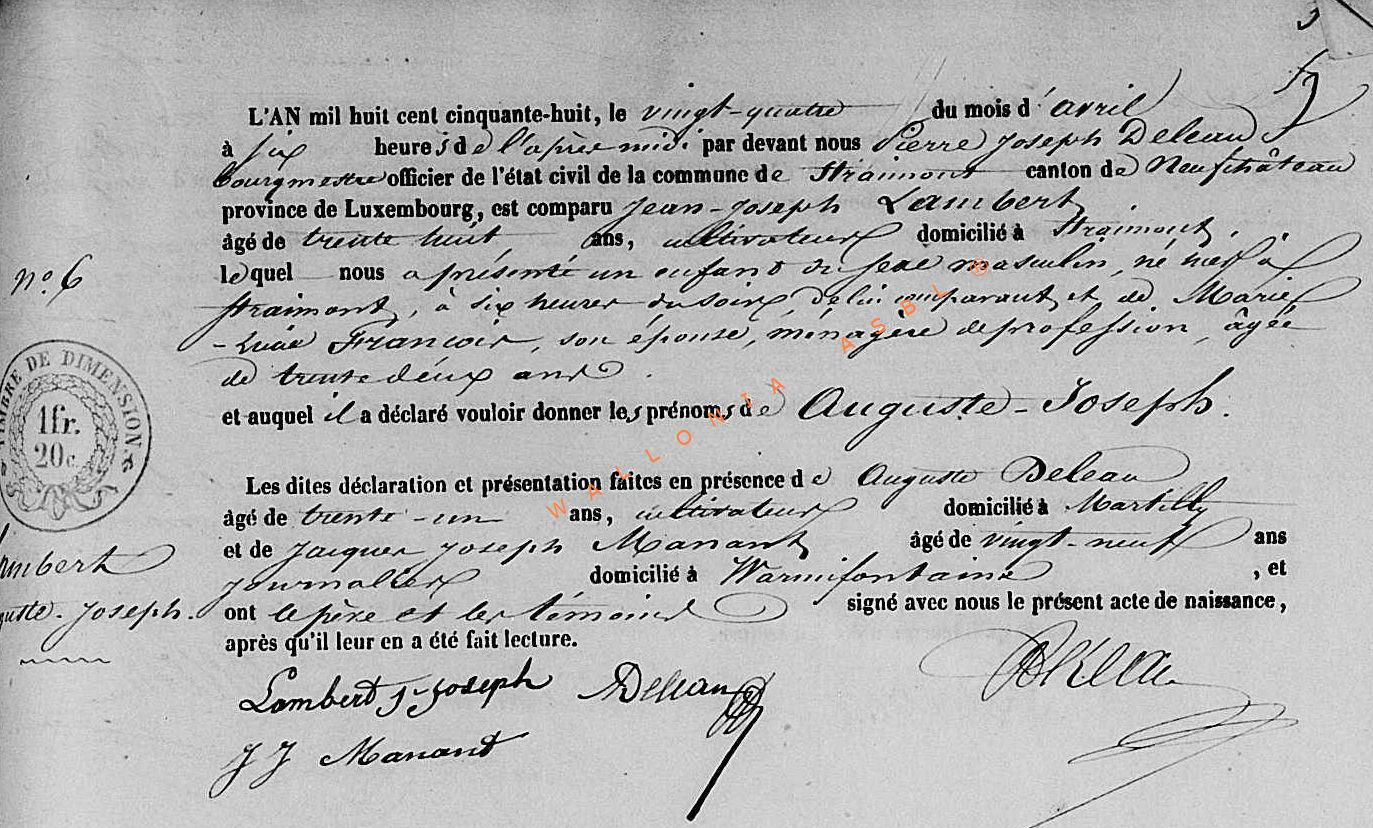 L'AN mil huit cent cinquante-huit, le vingt-quatre du mois d'avril
à six heures de l'après midi par devant nous Pierre Joseph Deleau
bourgmestre officier de l'état civil de la commune de Straimont canton de Neufchâteau
province de Luxembourg, est comparu Jean-Joseph Lambert,
âgé de trente huit ans, cultivateur domicilié à Straimont,
lequel nous a présenté un enfant du sexe masculin, né hier à
nº 6
Straimont, à six heures du soir, de lui comparant et de Marie
- François, son épouse, ménagère de profession, âgée
de trente deux ans.
et auquel il a déclaré vouloir donner les prénoms de Auguste-Joseph.
TIMBRE DE DIMENSION
1 fr.
20 c.
Les dites déclaration et présentation faites en présence de Auguste Deleau
âgé de trente-un ans, cultivateur domicilié à Martilly
et de Jacques Joseph Manant âgé de vingt-neuf ans
journalier domicilié à Warmifontaine, et
ont le père et les témoins signé avec nous le présent acte de naissance,
après qu'il leur en a été fait lecture.
mbert
guste-Joseph.
Lambert J-Joseph ADeleau
J J Manant
WALLONIA ASBL ©